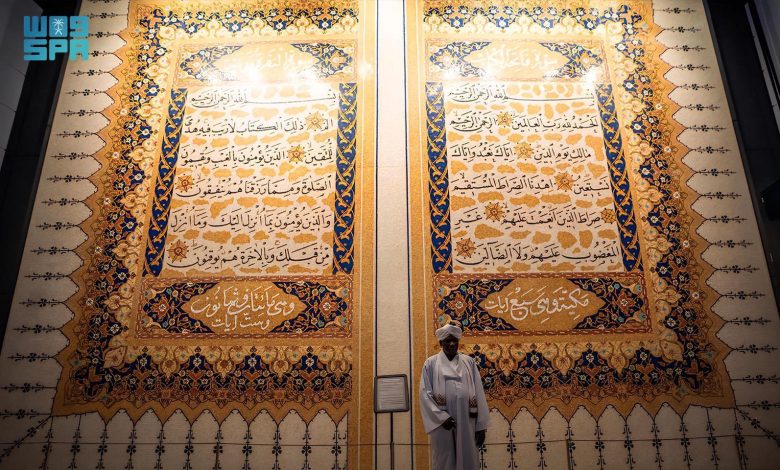 واس
SPA
سورة فاتحة الكتاب
بسم الله الرحمن الرحيم
الحمد لله رب العالمين الرحمن الرحيم
مالك يوم الدين اياك نعبد واياك
نستعين اهدنا الصراط المستقيم
صراط الذين انعمت عليهم غير
المغضوب عليهم ولا الضالين
مكية وهي سبع آيات
سورة البقرة
بسم الله الرحمن الرحيم
الم ذلك الكتاب لا ريب فيه هدى
للمتقين الذين يؤمنون بالغيب ويقيمون
الصلوة ومما رزقناهم ينفقون
والذين يؤمنون بما انزل اليك وما انزل
من قبلك وبالاخرة هم يوقنون
وهي مائتان وثمانون
وست آيات